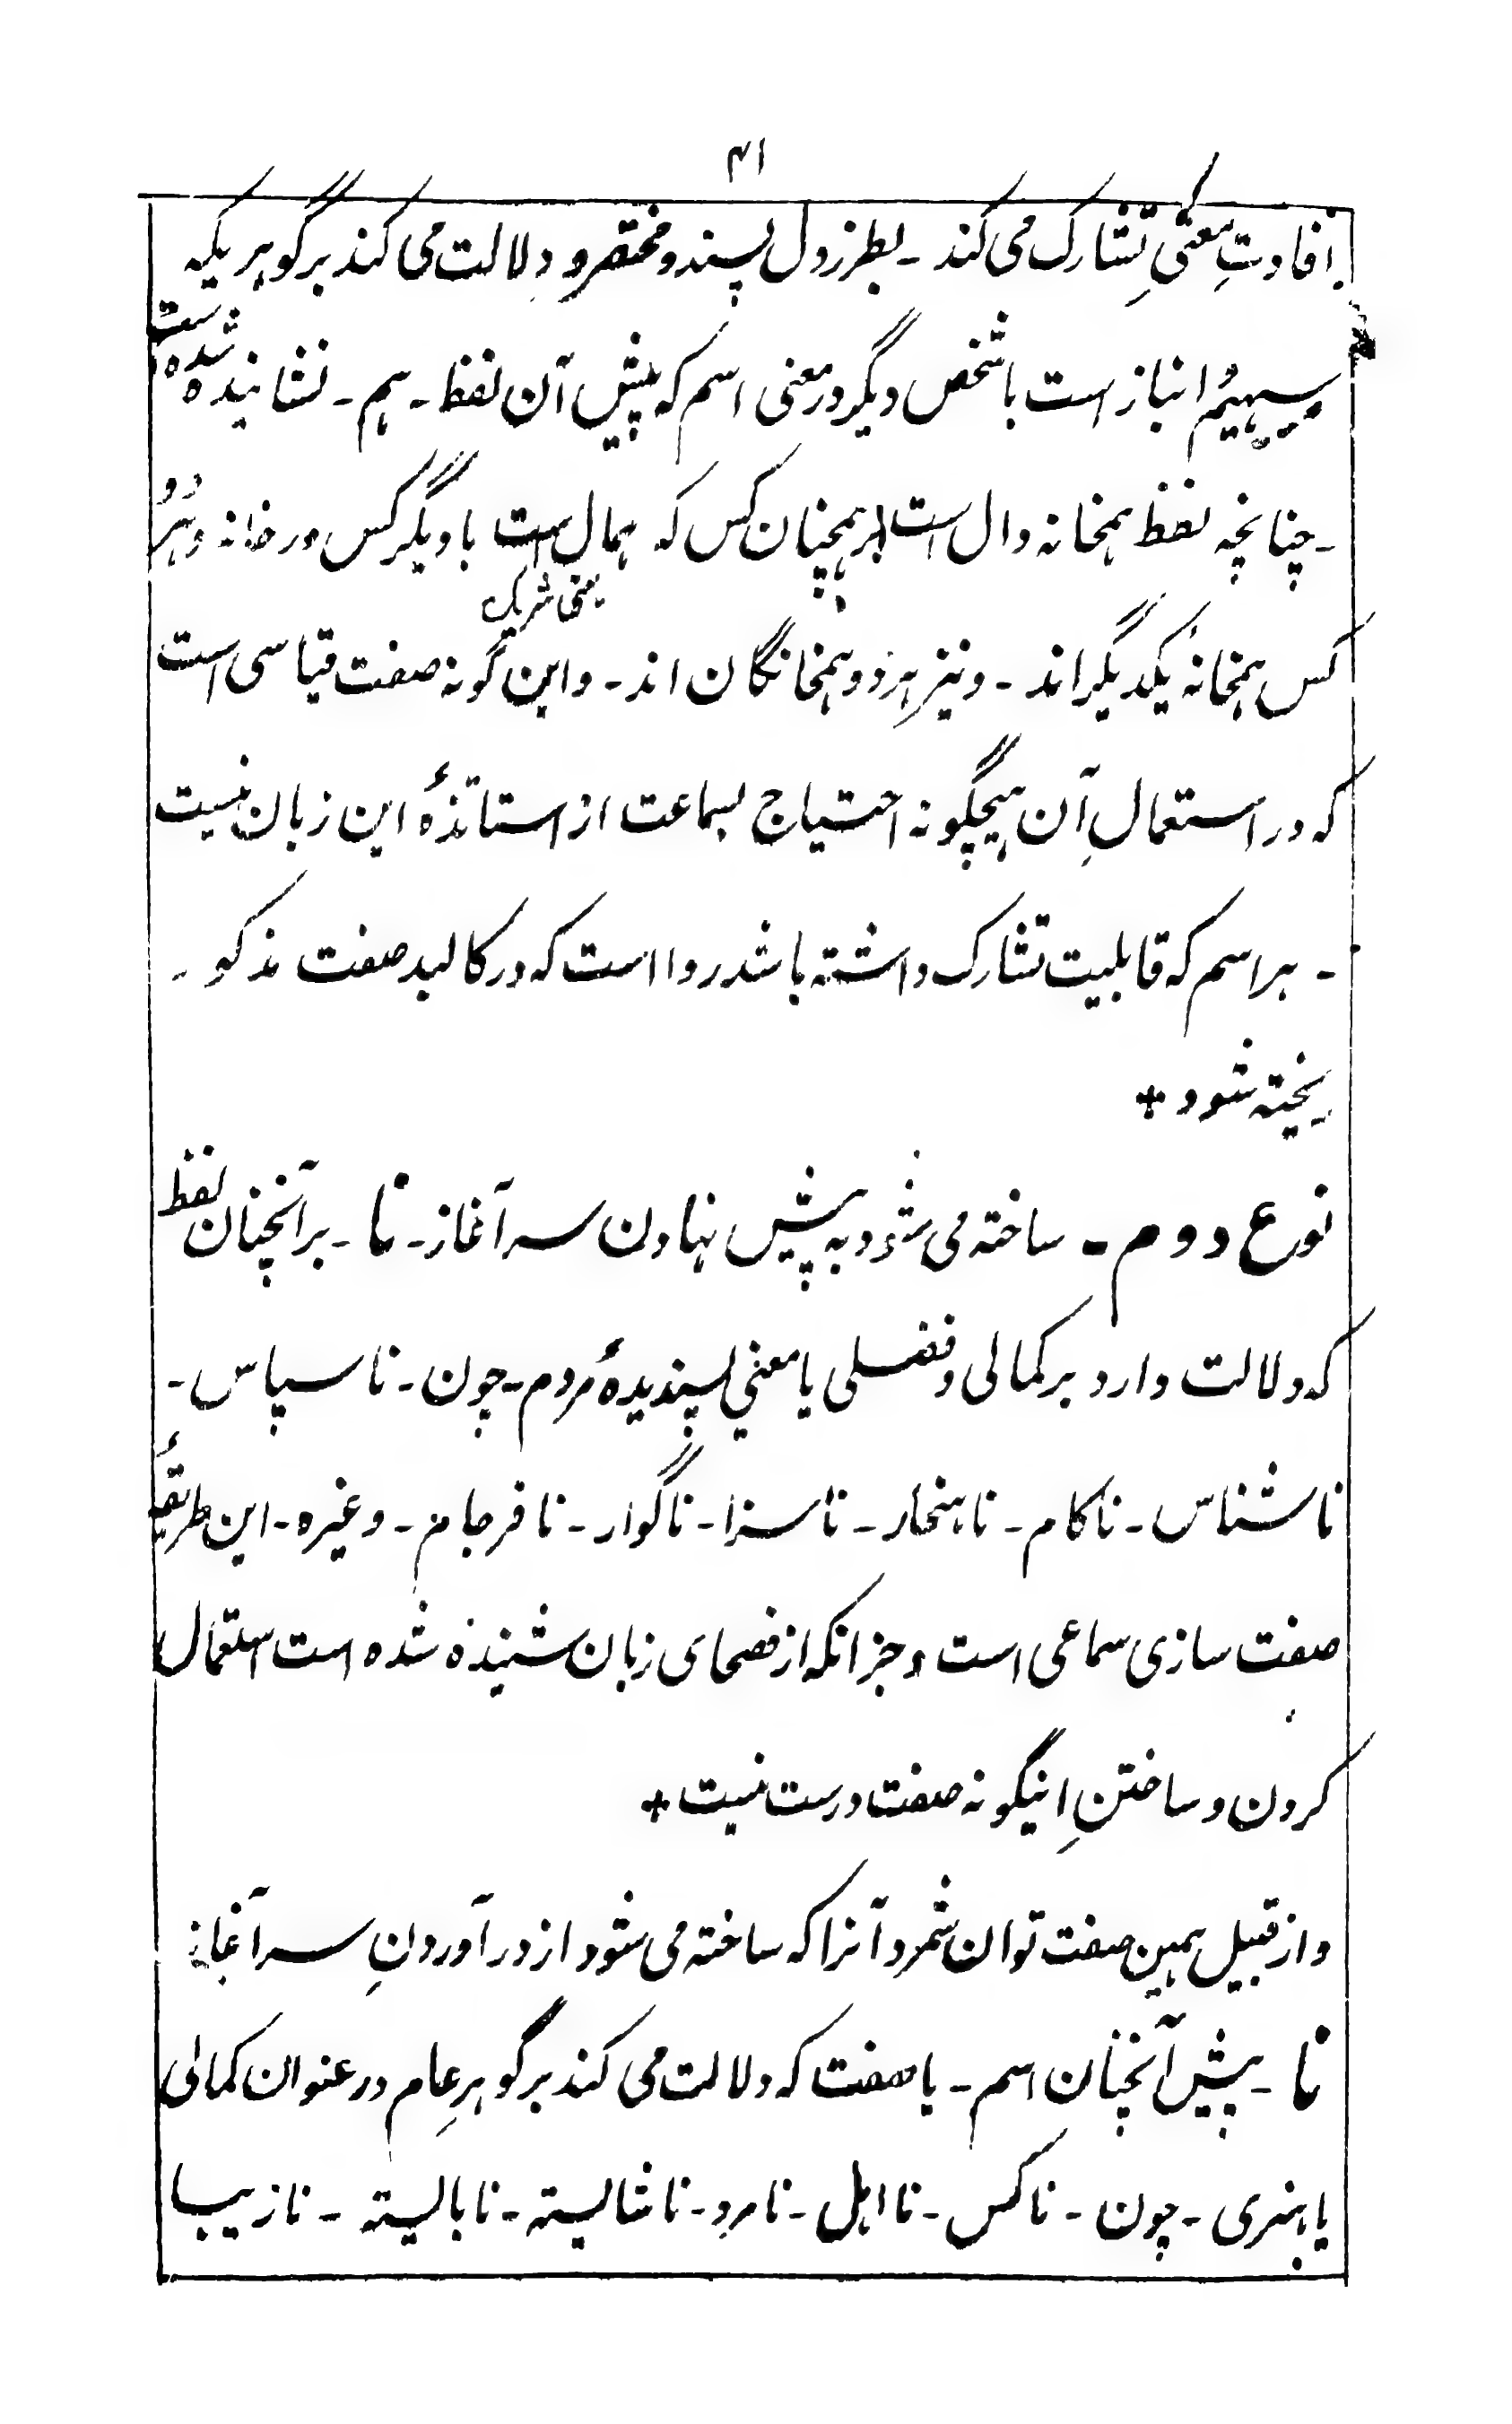 ۴۱
افادتِ معنیِ تشارک می کند - بطرز دل پسند و مختصر و دلالت می کند بر گوہریکہ
سہیم انباز است با شخص دیگر در معنی اسم کہ پیش آن لفظ - ہم - نشانیدہ شدہ است
- چنانچہ لفظ ہمخانہ دال است بر ہمچنان کس کہ ہمال است با دیگر کس در خانہ و ہر دو
یعنی شریک
کس ہمخانۂ یکدیگر اند - و نیز ہر دو ہمخانگان اند - و این گونہ صفت قیاسی است
کہ در استعمالِ آن ہیچگونہ احتیاج بسماعت از استاتذۂ این زبان نیست
- ہر اسم کہ قابلیت تشارک داشتہ باشد روا است کہ در کالبد صفت مذکور
ریختہ شود +
نوع دوم - ساختہ می شود بہ پیش نہادن سر آغاز - نا - بر آنچنان لفظ
کہ دلالت دارد بر کمالی و فضلی یا معنیِ پسندیدۂ مردم - چون - ناسپاس -
ناشناس - ناکام - ناہنجار - ناسزا - ناگوار - نافرجام - وغیرہ - این طریقۂ
صفت سازی سماعی است و جز انکہ از فصحای زبان شنیدہ شدہ است استعمال
کردن و ساختنِ اینگونہ صفت درست نیست +
و از قبیل ہمین صفت توان شمرد آنرا کہ ساختہ می شود از در آوردنِ سر آغاز
نا - پیش آنچنان اسم - یا صفت کہ دلالت می کند بر گوہرِ عام در عنوان کمالی
یا ہنری - چون - ناکس - نا اہل - نامرد - ناشایستہ - نابایستہ - نازیبا